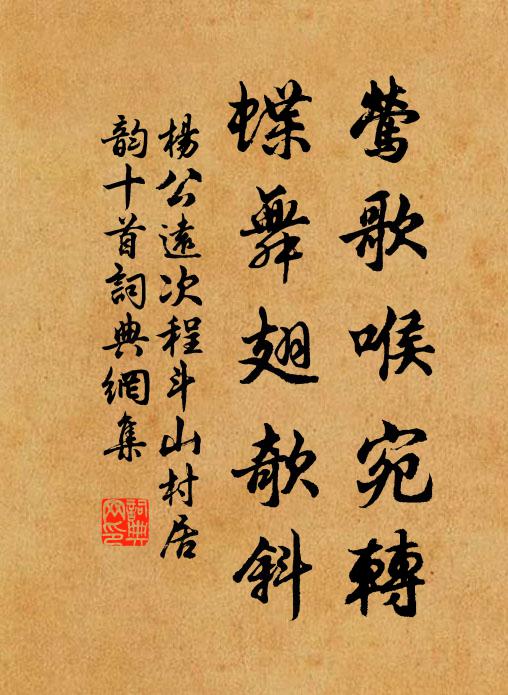 鶯歌喉宛轉
蝶舞翅欹斜
楊公遠次程斗山村居
韻十首詞典網集
詞典
网印